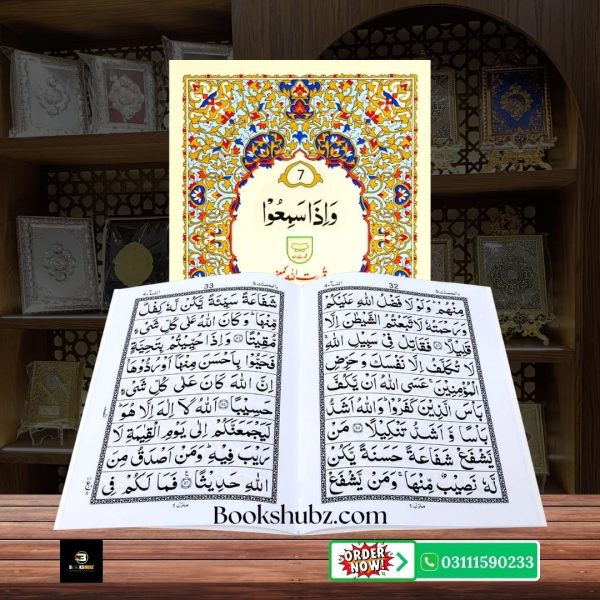 7
وَاِذَا سَمِعُوْا
قدرت اللہ کمپنی
32
مِنْهُمْ ؕ وَلَوْلَا فَضْلُ اللّٰهِ عَلَيْكُمْ
وَرَحْمَتُهٗ لَاتَّبَعْتُمُ الشَّيْطٰنَ اِلَّا
قَلِيْلًا فَقَاتِلْ فِيْ سَبِيْلِ اللّٰهِ ۚ
لَا تُكَلَّفُ اِلَّا نَفْسَكَ وَحَرِّضِ
الْمُؤْمِنِيْنَ ۚ عَسَى اللّٰهُ اَنْ يَّكُفَّ
بَاْسَ الَّذِيْنَ كَفَرُوْا ؕ وَاللّٰهُ اَشَدُّ
بَاْسًا وَّ اَشَدُّ تَنْكِيْلًا مَنْ
يَّشْفَعْ شَفَاعَةً حَسَنَةً يَّكُنْ
لَّهٗ نَصِيْبٌ مِّنْهَا ۚ وَمَنْ يَّشْفَعْ
منزل ١
33
شَفَاعَةً سَيِّئَةً يَّكُنْ لَّهٗ كِفْلٌ
مِّنْهَا ؕ وَكَانَ اللّٰهُ عَلٰى كُلِّ شَيْءٍ
مُّقِيْتًا وَاِذَا حُيِّيْتُمْ بِتَحِيَّةٍ
فَحَيُّوْا بِاَحْسَنَ مِنْهَاۤ اَوْ رُدُّوْهَا ؕ
اِنَّ اللّٰهَ كَانَ عَلٰى كُلِّ شَيْءٍ
حَسِيْبًا اَللّٰهُ لَاۤ اِلٰهَ اِلَّا هُوَ ؕ
لَيَجْمَعَنَّكُمْ اِلٰى يَوْمِ الْقِيٰمَةِ لَا
رَيْبَ فِيْهِ ؕ وَمَنْ اَصْدَقُ مِنَ
اللّٰهِ حَدِيْثًا فَمَا لَكُمْ فِي
منزل ١
Bookshubz.com
BOOKSHUBZ
ORDER NOW!
03111590233